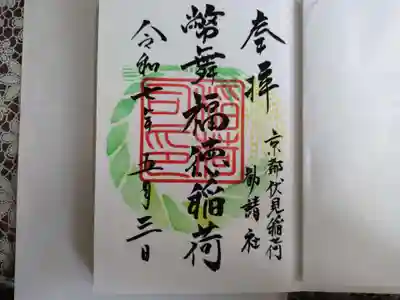 奉拝
京都伏見稲荷
勧請社
幣舞福徳稲荷
令和七年五月三日